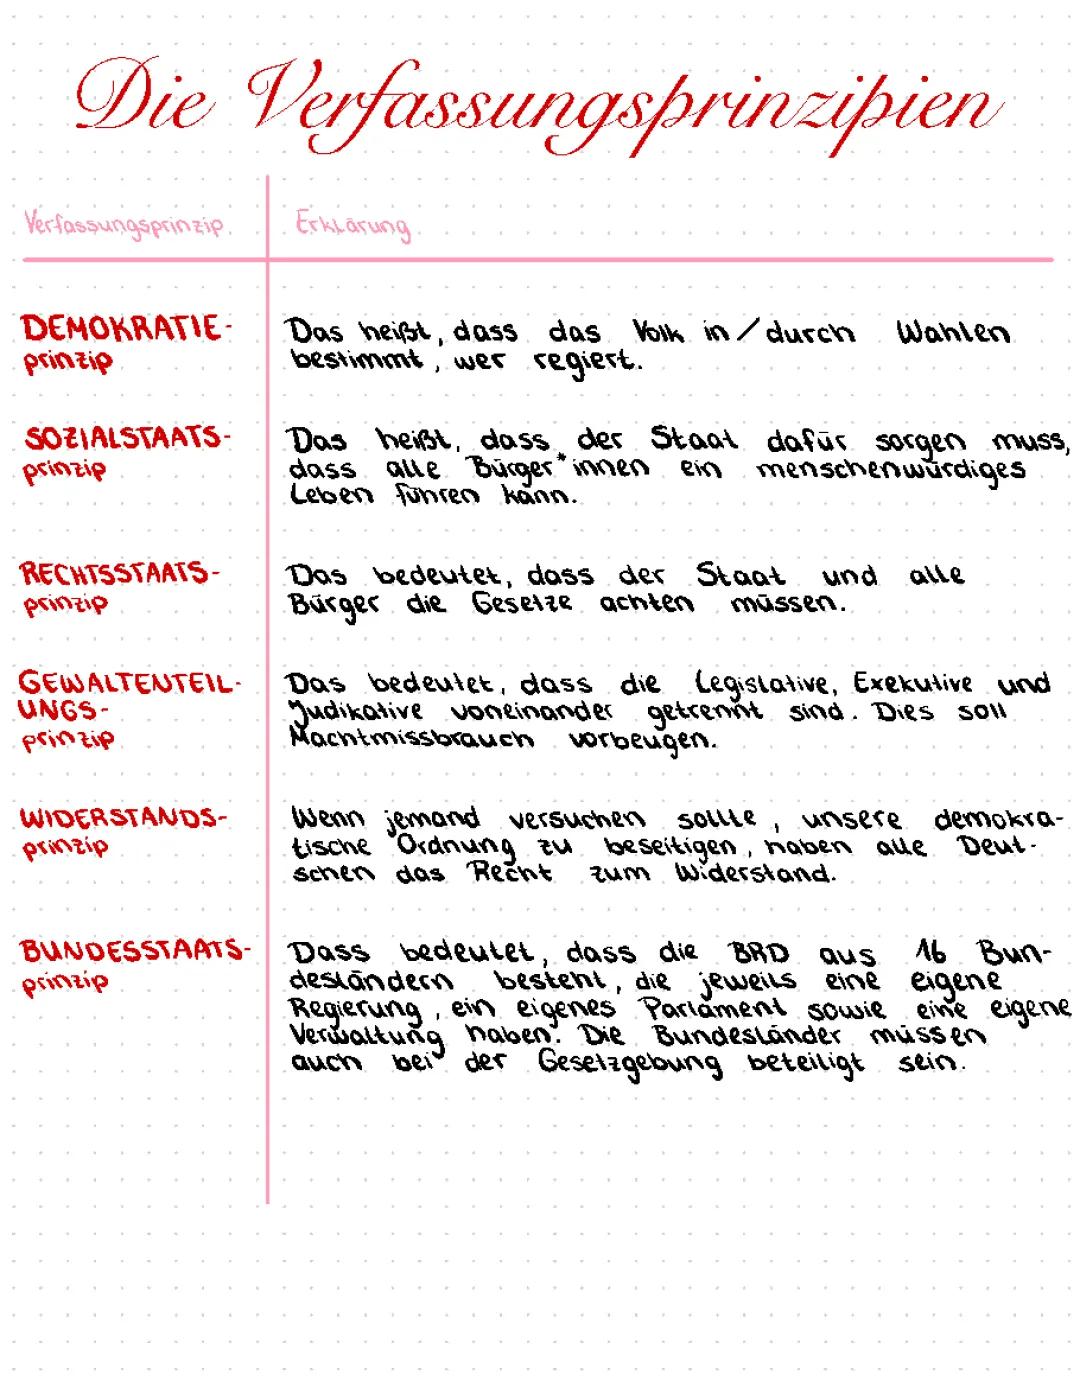 Die Verfassungsprinzipien
Verfassungsprinzip
Erklärung
DEMOKRATIE-
prinzip
Das heißt, dass das Volk in / durch Wahlen
bestimmt, wer regiert.
SOZIALSTAATS-
prinzip
Das heißt, dass der Staat dafür sorgen muss,
dass alle Bürger*innen ein menschenwürdiges
Leben führen kann.
RECHTSSTAATS-
prinzip
Das bedeutet, dass der Staat und alle
Bürger die Gesetze achten müssen.
GEWALTENTEIL-
UNGS-
prinzip
Das bedeutet, dass die Legislative, Exekutive und
Judikative voneinander getrennt sind. Dies soll
Machtmissbrauch vorbeugen.
WIDERSTANDS-
prinzip
Wenn jemand versuchen sollte, unsere demokra-
tische Ordnung zu beseitigen, haben alle Deut-
schen das Recht zum Widerstand.
BUNDESSTAATS-
prinzip
Dass bedeutet, dass die BRD aus 16 Bun-
desländern besteht, die jeweils eine eigene
Regierung, ein eigenes Parlament sowie eine eigene
Verwaltung haben. Die Bundesländer müssen
auch bei der Gesetzgebung beteiligt sein.